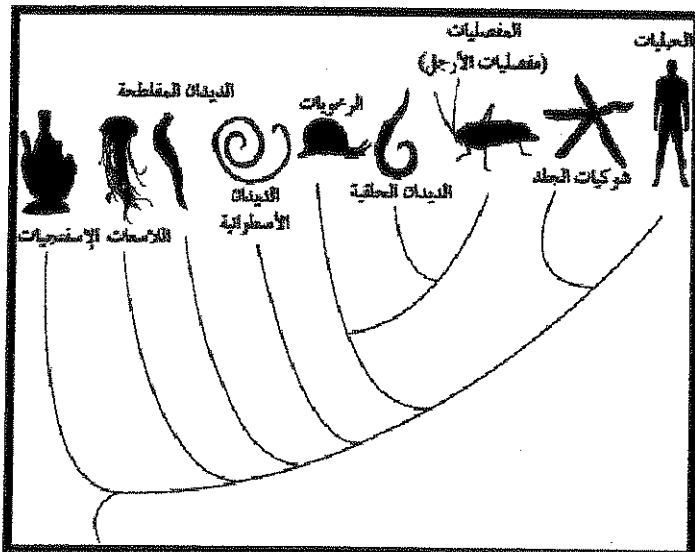 الحبليات
المفصليات
(مفصليات الأرجل)
الديدان المفلطحة
الرخويات
شوكيات الجلد
الديدان الحلقية
الديدان
الأسطوانية
اللاسعات
الإسفنجيات